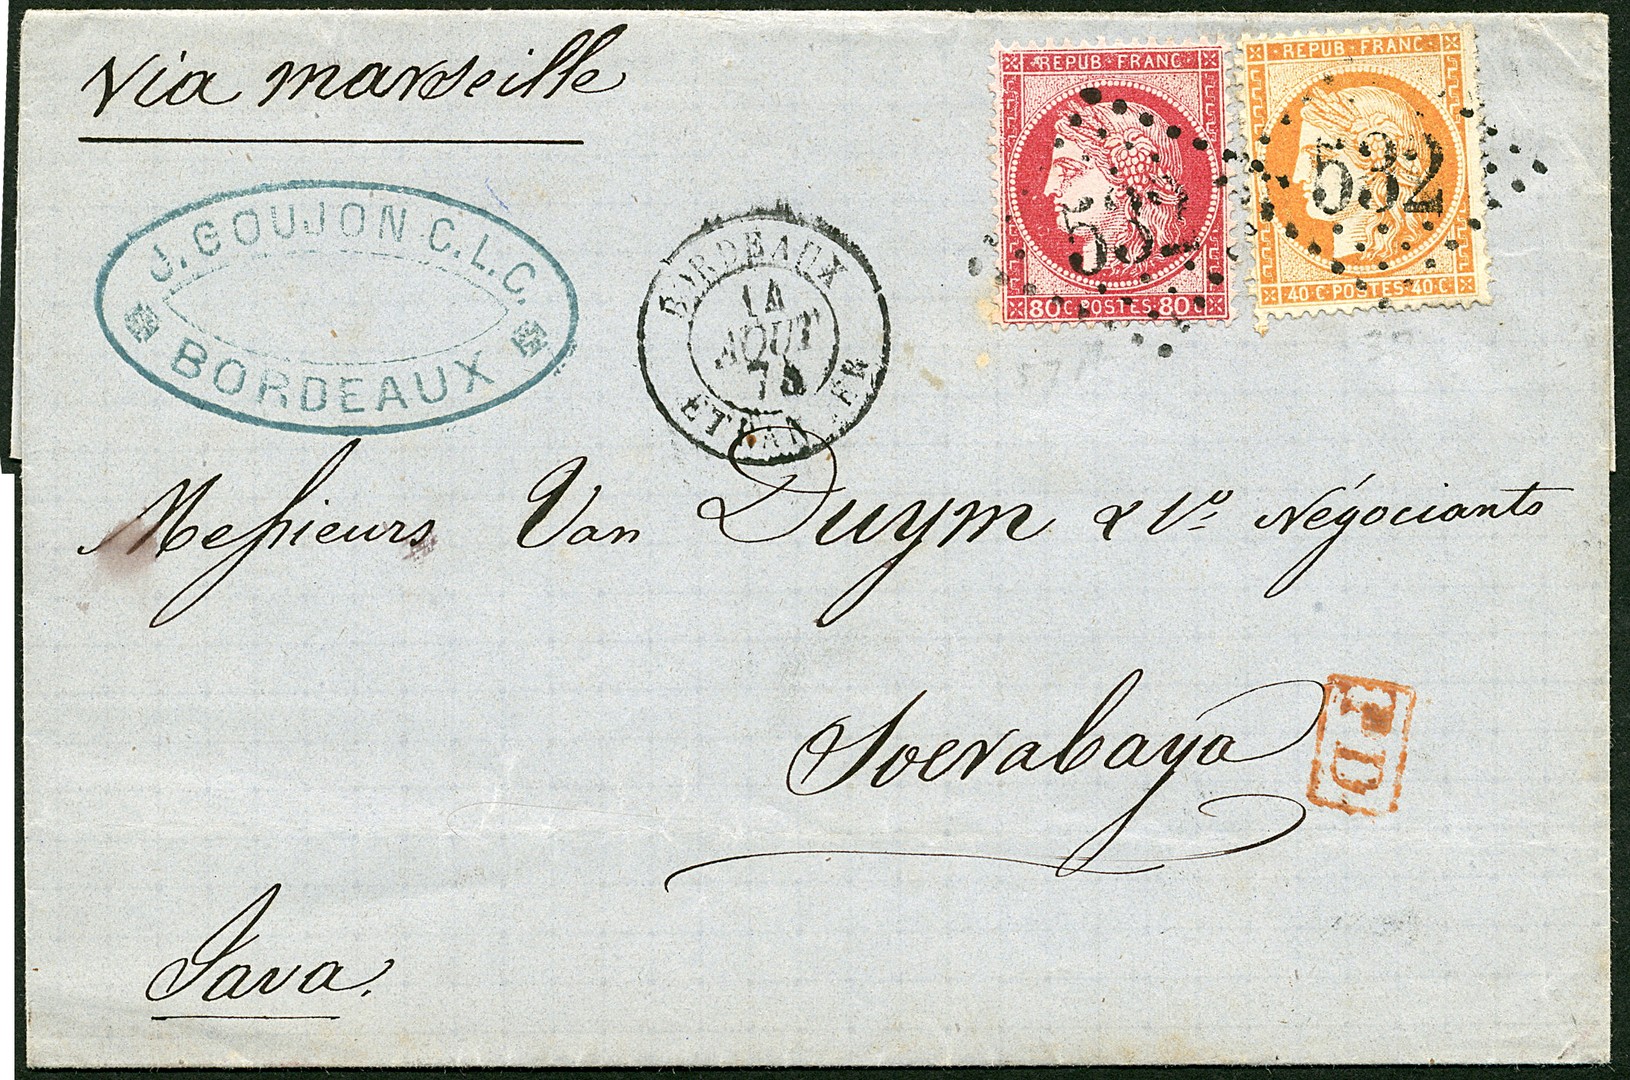 Via Marseille
J. GOUJON C.L.C.
BORDEAUX
BORDEAUX
14
AOUT
ETRANGER
REPUB·FRANC·
532
80C·POSTES·80C
REPUB·FRANC·
532
40·C·POSTES·40·C
Messieurs Van Duym & Vo. Négociants
Soerabaya
P.D.
Java.